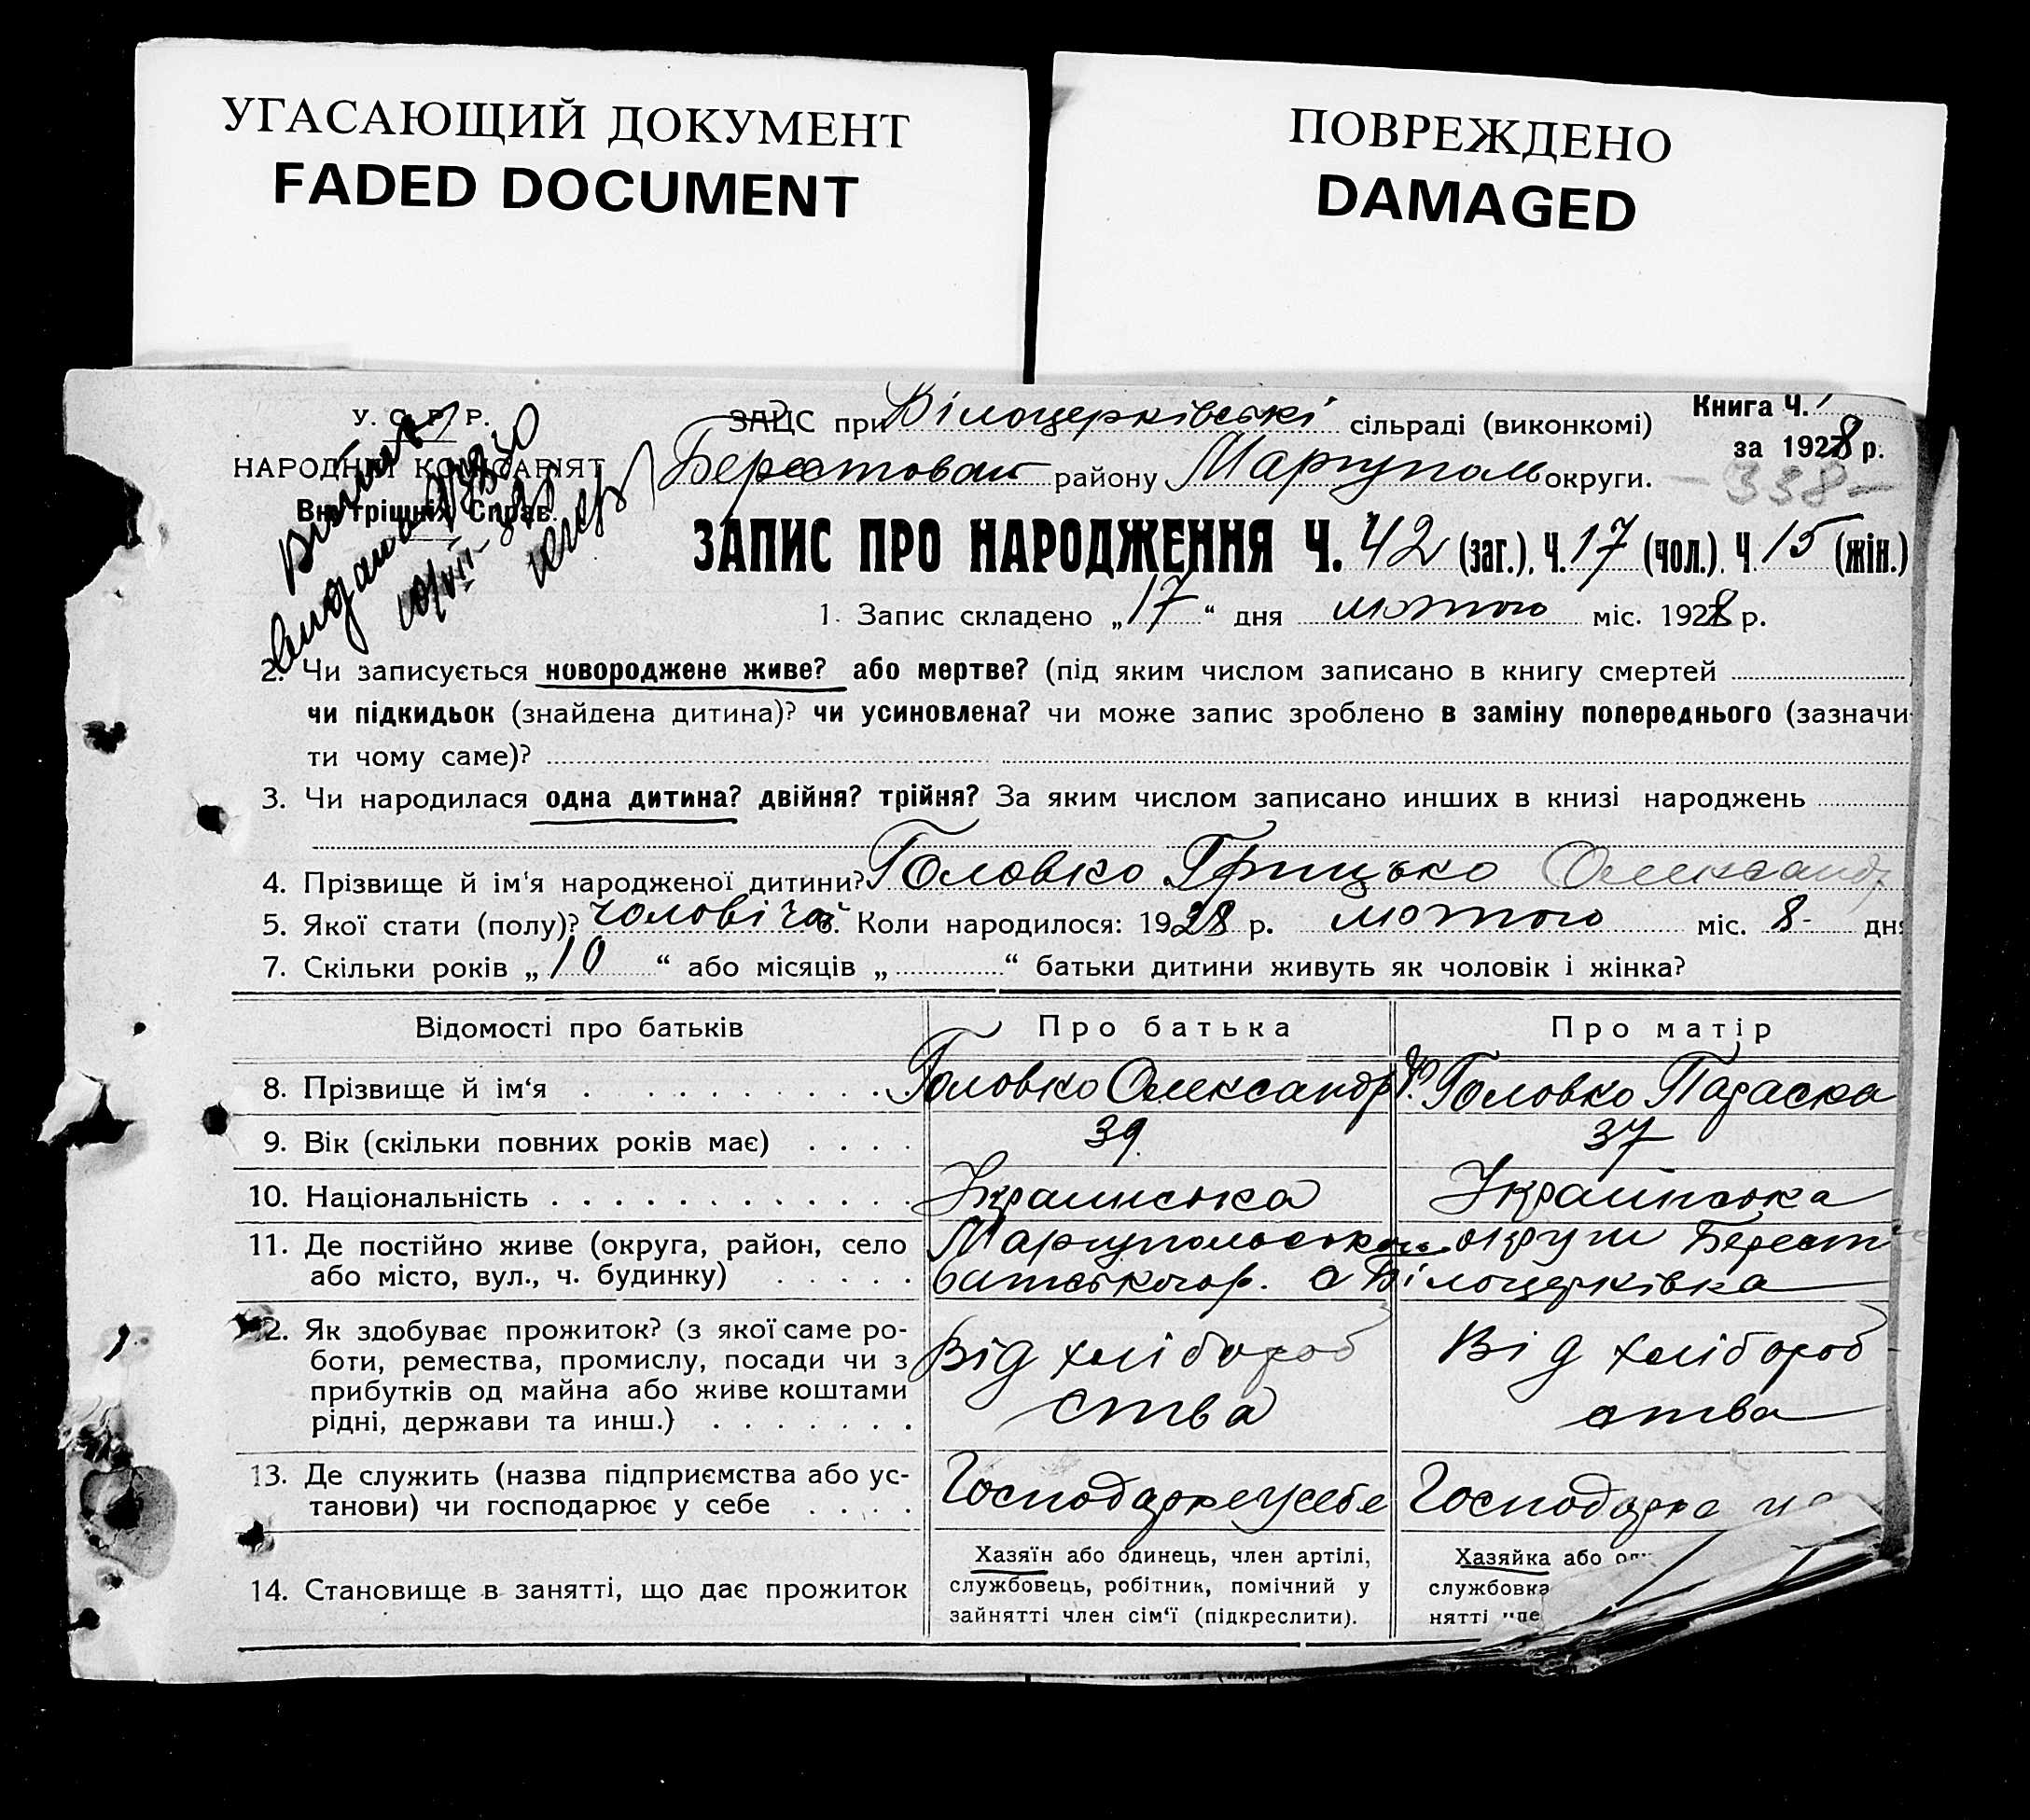 УГАСАЮЩИЙ ДОКУМЕНТ
FADED DOCUMENT
ПОВРЕЖДЕНО
DAMAGED
У. С. Р. Р.
НАРОДНІЙ КОМІСАРІЯТ
Внутрішніх Справ.
ЗАЦС при Білоцерківські сільраді (виконкомі)
Берестован району Маріуполь округи.
Книга Ч. 1
за 1928 р.
- 338 -
ЗАПИС ПРО НАРОДЖЕННЯ Ч. 42 (заг.), Ч. 17 (чол.). Ч 15 (жін.)
1. Запис складено „17“ дня лютого міс. 1928 р.
2. Чи записується новороджене живе? або мертве? (під яким числом записано в книгу смертей
чи підкидьок (знайдена дитина)? чи усиновлена? чи може запис зроблено в заміну попереднього (зазначи-
ти чому саме)?
3. Чи народилася одна дитина? двійня? трійня? За яким числом записано инших в книзі народжень
4. Прізвище й ім'я народженої дитини? Головко Грицько Олександр
5. Якої стати (полу)? чоловічої 6. Коли народилося: 1928 р. лютого міс. 8- дня
7. Скільки років „10“ або місяців „ “ батьки дитини живуть як чоловік і жінка?
Відомості про батьків Про батька Про матір
8. Прізвище й ім‘я . . . . . . . . . . Головко Олександр Ф. Головко Параска
9. Вік (скільки повних років має) . . . . 39 37
10. Національність . . . . . . . . . . . . Украинська Украинська
11. Де постійно живе (округа, район, село Маріупольської округи Берест
або місто, вул., ч. будинку) . . . . . ватського р. с Білоцерківка
12. Як здобуває прожиток? (з якої саме ро-
боти, ремества, промислу, посади чи з Від хлібороб Від хлібороб-
прибутків од майна або живе коштами
рідні, держави та инш.) . . . . . . . ства ства
13. Де служить (назва підприємства або ус-
танови) чи господарює у себе . . . . Господарює у себе Господарює у
14. Становище в занятті, що дає прожиток
Хазяїн або одинець, член артілі,
службовець, робітник, помічний у
зайнятті член сім‘ї (підкреслити).
Хазяйка або
службовка
нятті